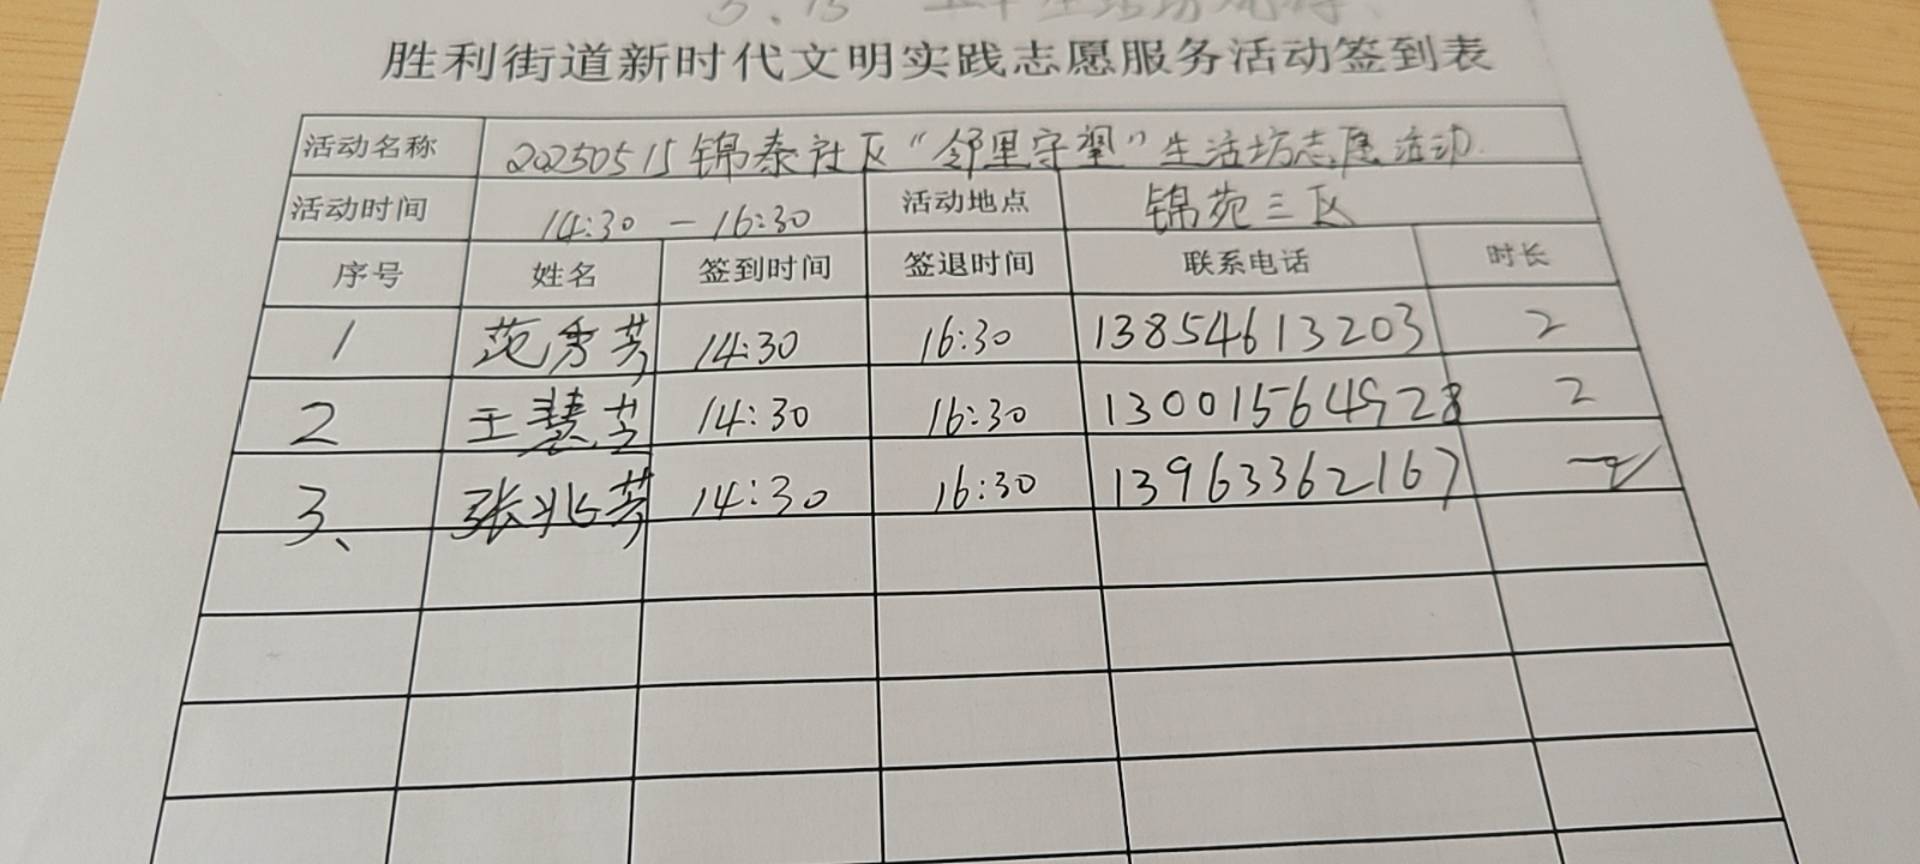 胜利街道新时代文明实践志愿服务活动签到表
活动名称 20250515锦泰社区“邻里守望”生活坊志愿活动
活动时间 14:30-16:30 活动地点 锦苑三区
序号 姓名 签到时间 签退时间 联系电话 时长
1 范秀芳 14:30 16:30 13854613203 2
2 王慧芝 14:30 16:30 13001564928 2
3、 张兆芳 14:30 16:30 13963362167